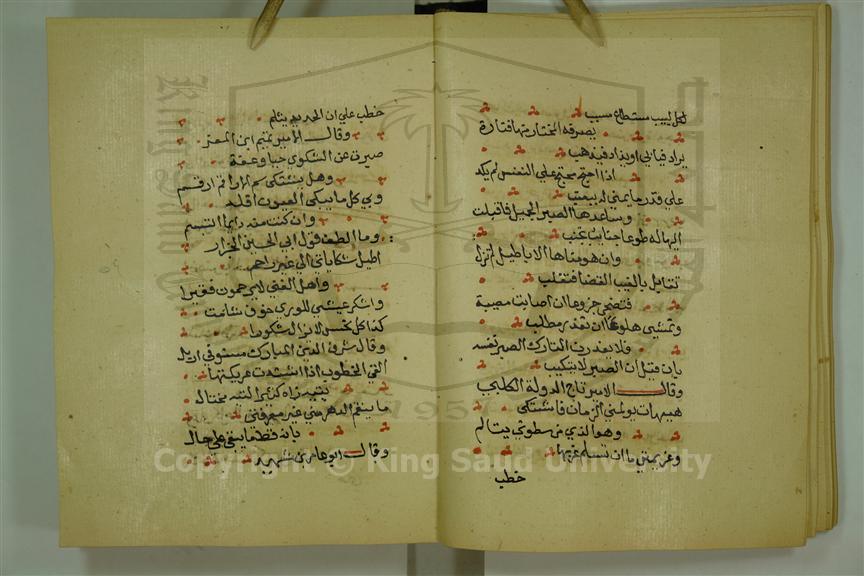 لكل لبيب مستطاع سبب
بصرفه المختار منها فتارة
يراد فياتي او يزاد فيذهب
اذا احتج محتج علي النفس لم يكد
علي قدر ما يمني له يعتب
وساعدها الصبر الجميل فاقبلت
اليها له طوعا جنايب تجنب
وان هو مناها الاباطيل لم تزل
تقاتل بالغيب القضا فتغلب
فتضحي جزوعا ان اصابت مصيبة
وتمسي هلوعا ان تعذر مطلب
فلا يعذرن التارك الصبر نفسه
بان قيل ان الصبر لا يتكسب
وقال الامير تاج الدولة الكلبي
هيهات يولمني الزمان فاشتكي
وهو الذي من سطوتي يتالم
وعزيمتي ما ان تسلم غربها
خطب
خطب علي ان الحديد يثلم
وقال الامير تميم ابن المعز
صبرت عن الشكوي حيا وعفة
وهل يشتكي سم الاراقم ارقم
وبي كل ما يبكي العيون اقله
وان كنت منه دايما اتبسم
وما الطف قول ابي الحسين الجزار
اطيل شكاياتي الي غير راحم
واهل الغني لا يرحمون فقيرا
واشكر عيشي للوري خوف شامت
كذا كل نحس لا يزال شكورا
وقال شرف الدين المبارك مستوفي اربل
التي الخطوب اذا اشتدت عريكتها
ما ينقم الدهر مني غير معرفتي
بانه قط ما يبقي علي حال
وقال ابو عامر بن شهيد
Copyright © King Saud University
1957